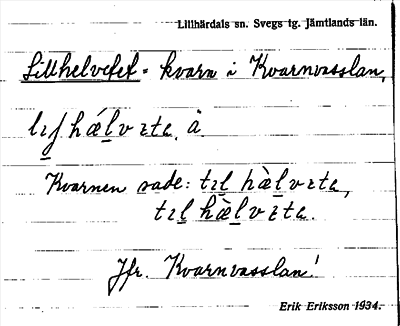 Lillhärdals sn. Svegs tg. Jämtlands län.
Lillhelvetet = kvarn i Kvarnvasslan,
hælvɪtə. å
Kvarnen sade: tɪl hælvɪtə,
tɪl hælvɪtə.
Jfr. Kvarnvasslan!
Erik Eriksson 1934.